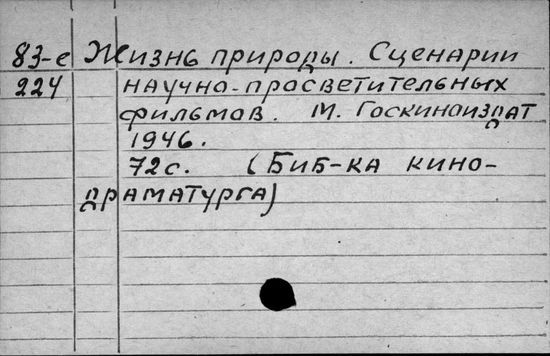 83-е Жизнь природы. Сценарии
224 научно-просветительных
фильмов. М. Госкиноиздат
1946.
72с. (Биб-ка кино-
драматурга)